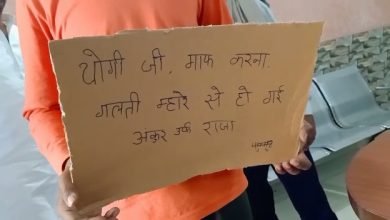 योगी जी. माफ करना.
गलती म्हारे से हो गई
अकुर उर्फ राजा